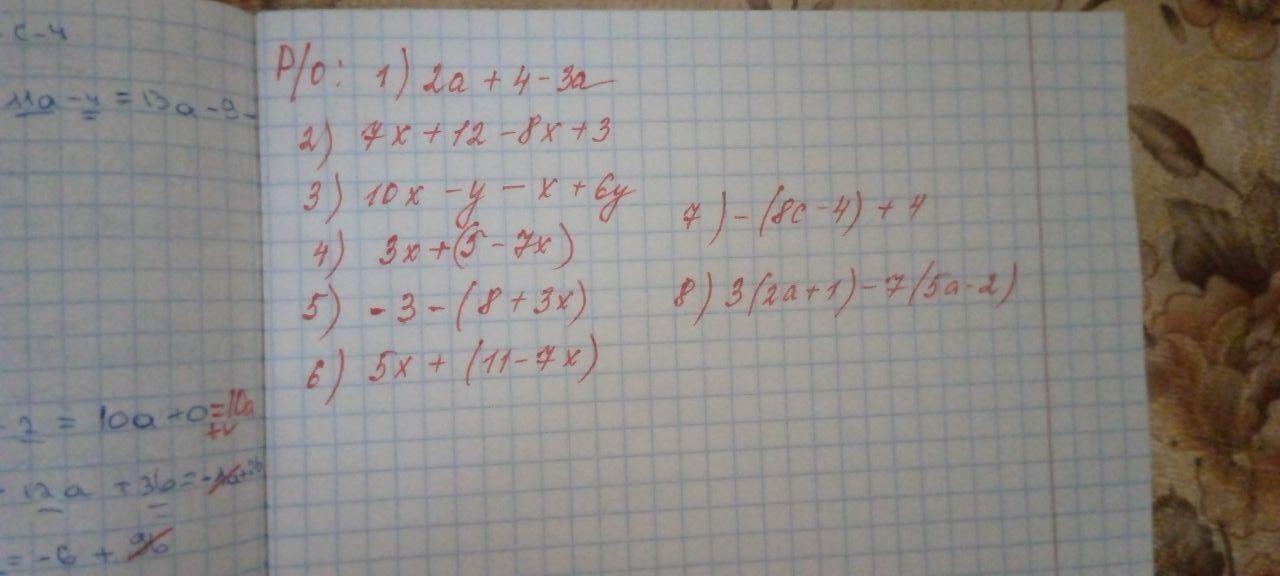 с-4
11a - 4 = 13a - 9 -
Р/о: 1) 2a + 4 - 3a
2) 7x + 12 - 8x + 3
3) 10x - y - x + 6y
4) 3x + (5 - 7x)
5) - 3 - (8 + 3x)
6) 5x + (11 - 7x)
7) - (8c - 4) + 4
8) 3(2a + 1) - 7(5a - 2)
= 10a + 0 = 10a
12a + 36 =
= -6 +